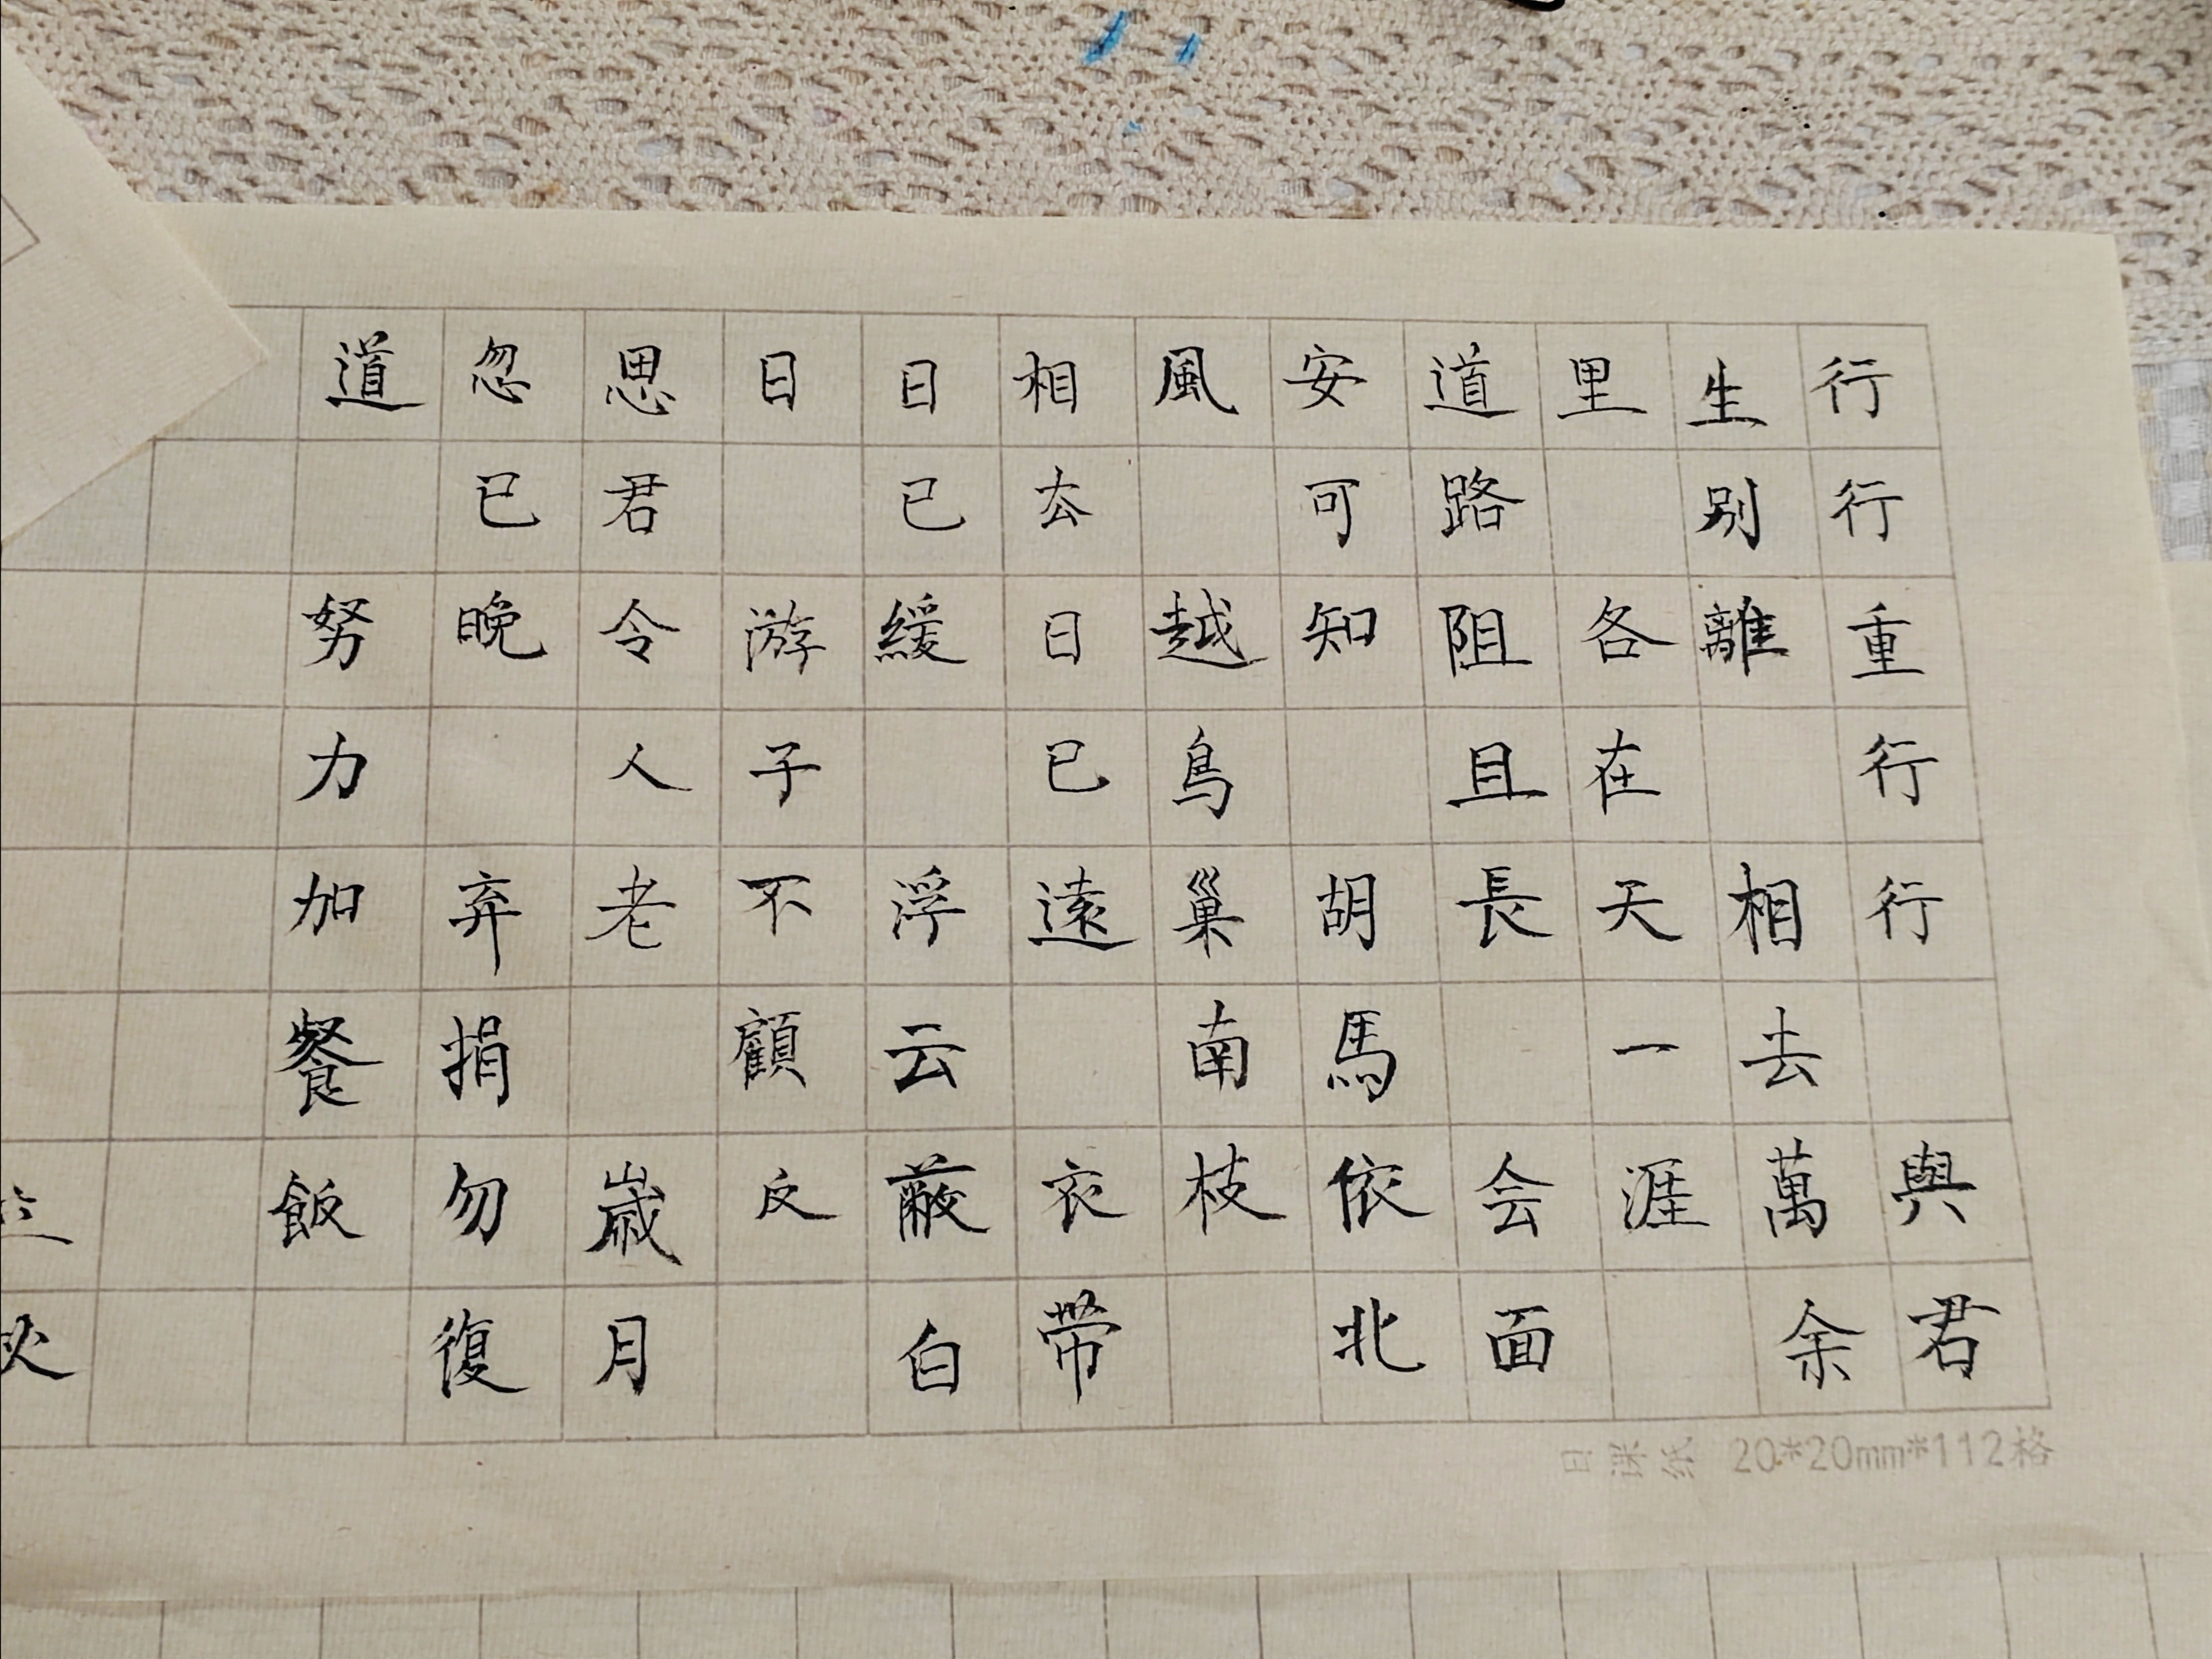 行行重行行 與君
生别離 相去萬余
里 各在天一涯
道路阻且長 会面
安可知 胡馬依北
風 越鳥巢南枝
相去日已遠 衣带
日已緩 浮云蔽白
日 游子不顧反
思君令人老 歲月
忽已晚 弃捐勿復
道 努力加餐飯
日课纸 20*20mm*112格